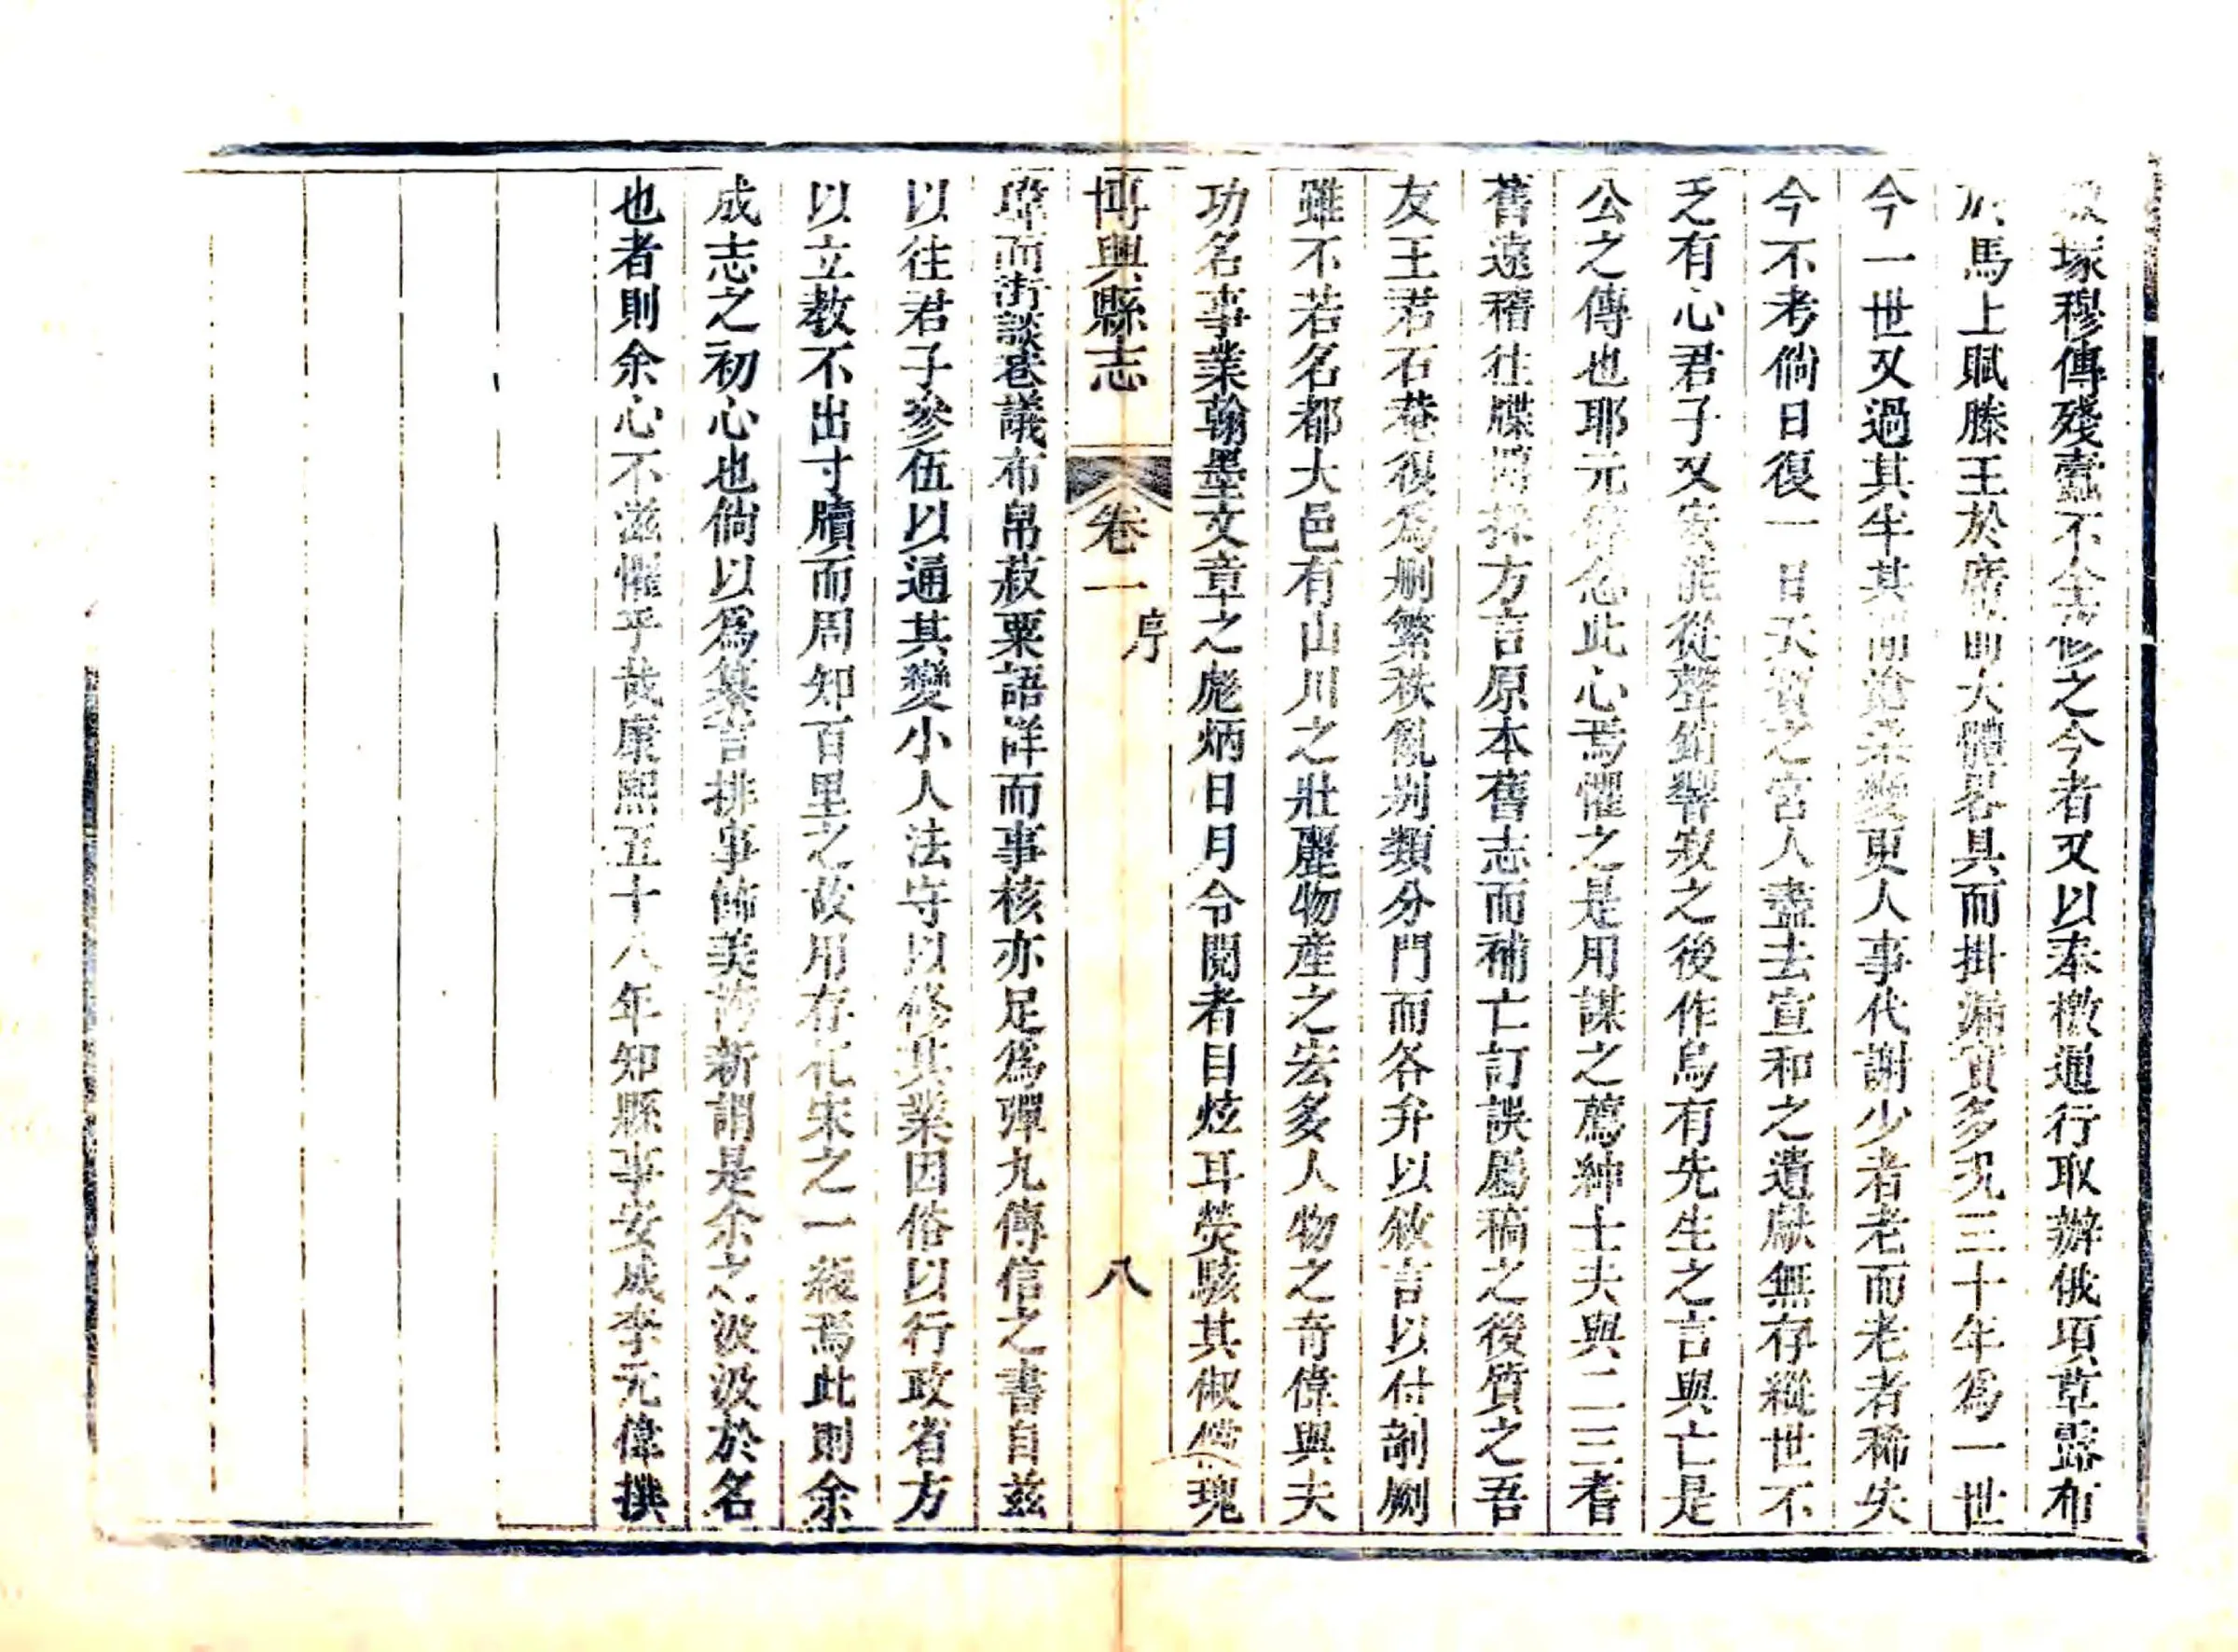 冢穆傳殘蠹不全修之今者又以奉檄通行取辦俄頃草露布
馬上賦滕王於席大體畧具而掛漏實多況三十年爲一世
今一世又過其半其間滄桑變更人事代謝少者老而老者稀失
今不考倘日復一日天寶之宮人盡去宣和之遺獻無存縱世不
乏有心君子又安能從聲銷響寂之後作烏有先生之言與亡是
公之傳也耶元偉念此心焉懼之是用謀之薦紳士夫與二三耆
舊遠稽往牒博採方言原本舊志而補亡訂誤屬稿之後質之吾
友王君石菴復爲刪繁秩亂别類分門而各弁以敘言以付剞劂
雖不若名都大邑有山川之壯麗物産之宏多人物之奇偉與夫
功名事業翰墨文章之彪炳日月令閱者目炫耳熒駭其俶儻瑰
博興縣志 卷一 序 八
瑋而街談巷議布帛菽粟語詳而事核亦足爲彈丸傳信之書自茲
以往君子參伍以通其變小人法守以修其業因俗以行政省方
以立教不出寸牘而周知百里之故用存杞宋之一線焉此則余
成志之初心也倘以爲纂言排事飾美誇新謂是余之汲汲於名
也者則余心不滋懼乎哉康熙五十八年知縣事安成李元偉撰